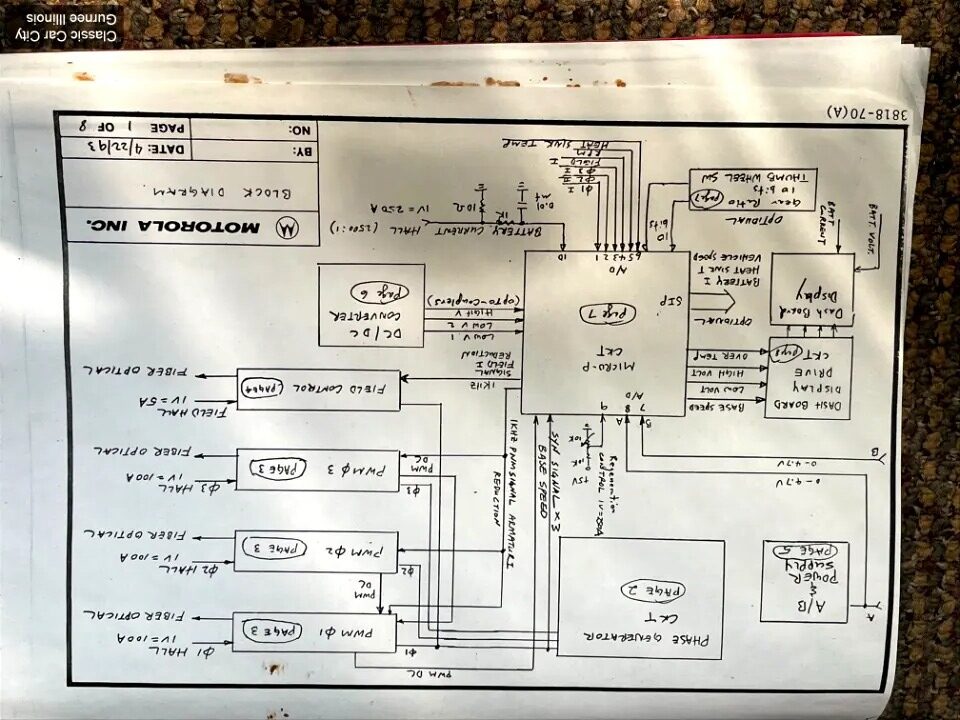 A
B
A/B
POWER
SUPPLY
PAGE 5
0-4.7V
0-4.7V
PHASE GENERATOR
CKT
PAGE 2
PWM DC
PWM Φ1
PAGE 3
Φ1
Φ1 HALL
1V = 100A
FIBER OPTICAL
PWM
DC
PWM Φ2
PAGE 3
Φ2
Φ2 HALL
1V = 100A
FIBER OPTICAL
PWM Φ3
PAGE 3
Φ3
PWM
DC
Φ3 HALL
1V = 100A
FIBER OPTICAL
FIELD CONTROL
PAGE 4
FIELD HALL
1V = 5A
FIBER OPTICAL
SYN SIGNAL X 3
BASE SPEED
REDUCTION
+5V
10K
10K
Regeneration
CONTROL
1KHZ
SIGNAL
FIELD I
REDUCTION
B
A
7 8 9
A/D
MICRO-P
CKT
page 7
SIP
A/D
6 5 4 3 2 1
10
DASH BOARD
DISPLAY
DRIVE
CKT
BASE SPEED
LOW VOLT
HIGH VOLT
OVER TEMP
Dash Board
Display
BATT. VOLT.
BATT
CURRENT
OPTIONAL
BATTERY I
HEAT SINK T
VEHICLE SPEED
OPTIONAL
Gear Ratio
10 bits
THUMB WHEEL SW
page 7
10
bits
LOW V 1
LOW V 2
HIGH V
(opto-couplers)
DC/DC
CONVERTER
page 6
BATTERY CURRENT HALL (2500:1)
1V = 250A
1K
10Ω
0.01
Φ1 I
Φ2 I
Φ3 I
FIELD I
RPM
HEAT SINK TEMP
MOTOROLA INC.
BLOCK DIAGRAM
BY:
DATE: 4/22/93
NO:
PAGE 1 OF 8
3818-70(A)
Classic Car City
Gurnee Illinois